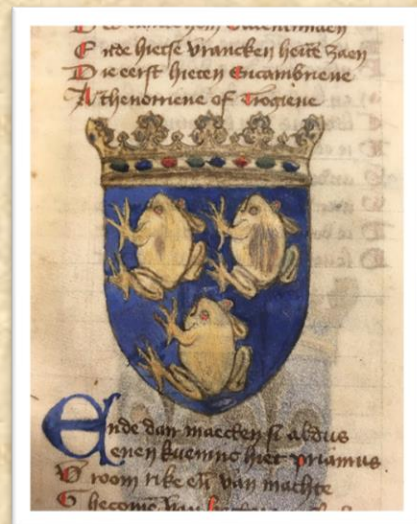 Ende hietse vrancken heite zaen
Die eerst hieten
of Trogiene
Ende dan maecten si aldus
eenen kueninc hiet priamus
Vroom rike eñ van machte